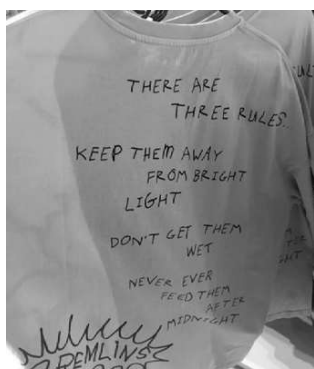 THERE ARE
THREE RULES..
KEEP THEM AWAY
FROM BRIGHT
LIGHT
DON'T GET THEM
WET
NEVER EVER
FEED THEM
AFTER
MIDNIGHT
GREMLINS